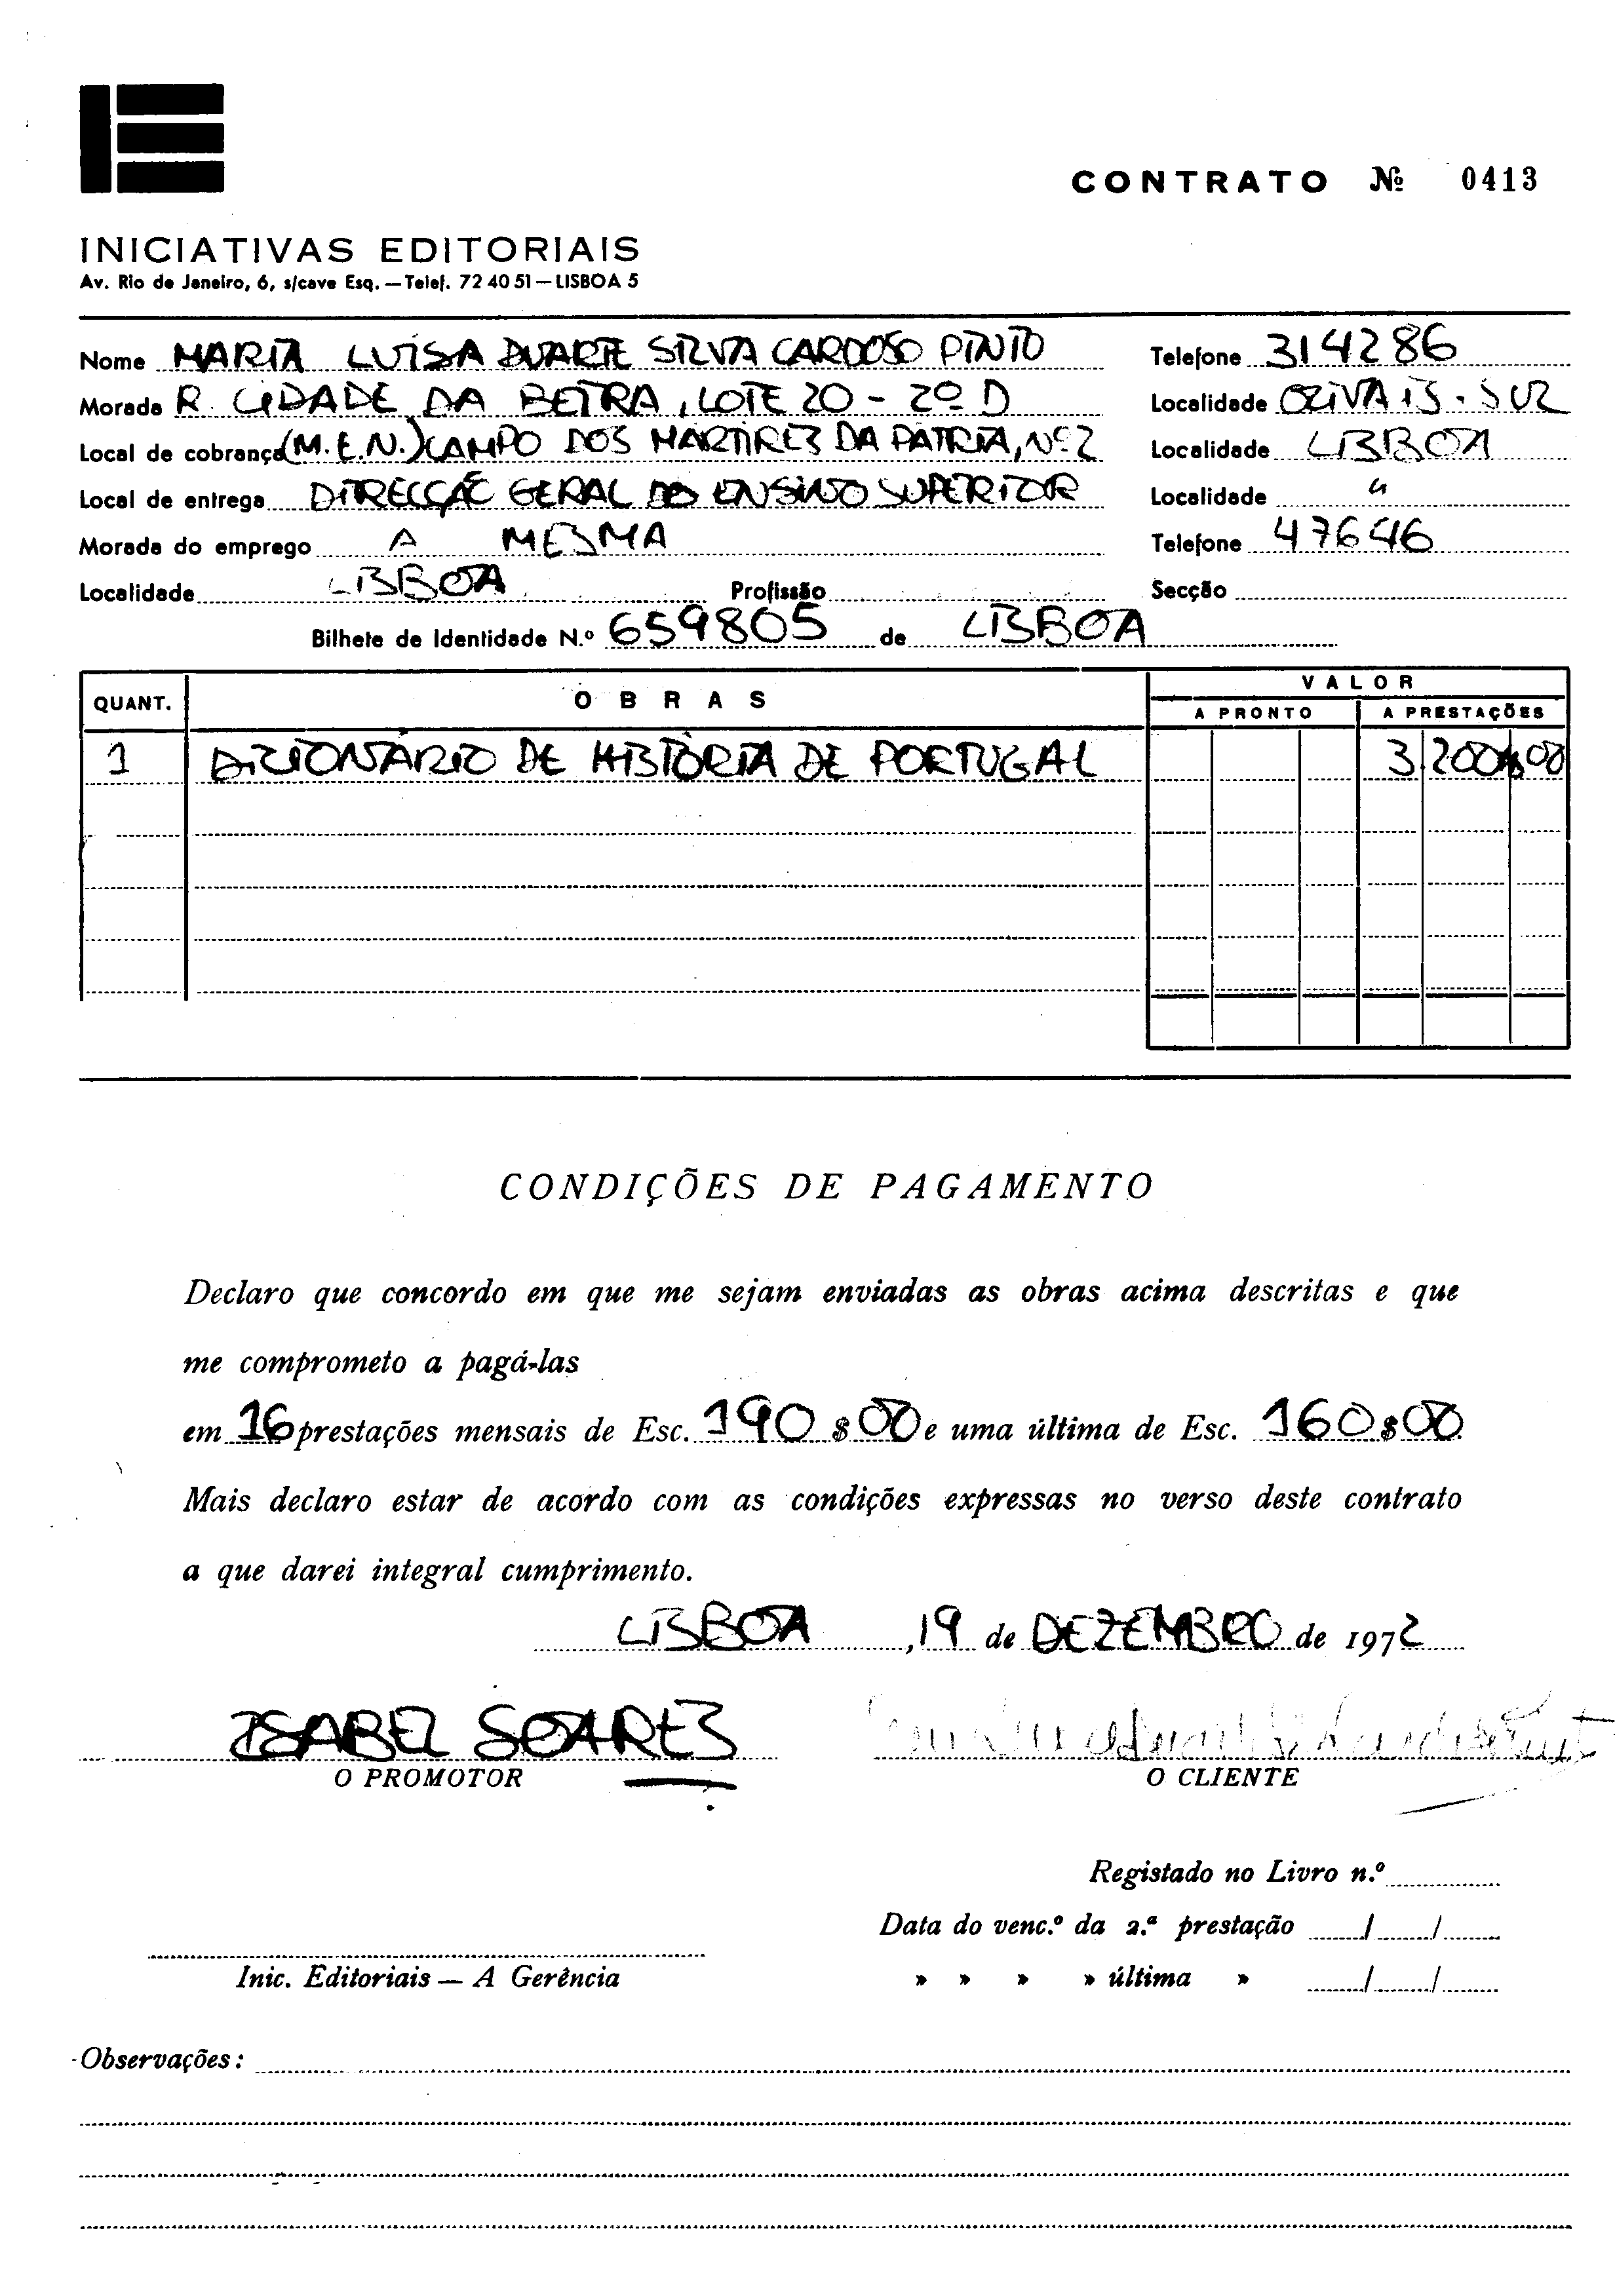 CONTRATO Nº 0413
INICIATIVAS EDITORIAIS
Av. Rio de Janeiro, 6, s/cave Esq. — Telef. 72 40 51 — LISBOA 5
Nome MARIA LUÍSA DUARTE SILVA CARDOSO PINTO Telefone 314286
Morada R. CIDADE DA BEIRA, LOTE 20 - 2º D Localidade OLIVAIS - SUL
Local de cobrança (M.E.N.) CAMPO DOS MARTIRES DA PATRIA, Nº 2 Localidade LISBOA
Local de entrega DIRECÇÃO GERAL DO ENSINO SUPERIOR Localidade "
Morada do emprego A MESMA Telefone 47646
Localidade LISBOA Profissão Secção
Bilhete de Identidade N.º 659805 de LISBOA
QUANT. OBRAS VALOR
A PRONTO A PRESTAÇÕES
1 DICIONÁRIO DE HISTÓRIA DE PORTUGAL 3.200$00
CONDIÇÕES DE PAGAMENTO
Declaro que concordo em que me sejam enviadas as obras acima descritas e que
me comprometo a pagá-las
em 16 prestações mensais de Esc. 190$00 e uma última de Esc. 160$00
Mais declaro estar de acordo com as condições expressas no verso deste contrato
a que darei integral cumprimento.
LISBOA, 19 de DEZEMBRO de 1972
ISABEL SOARES
O PROMOTOR O CLIENTE
Registado no Livro n.º
Data do venc.º da 2.ª prestação / /
Inic. Editoriais — A Gerência » » » » última » / /
Observações: